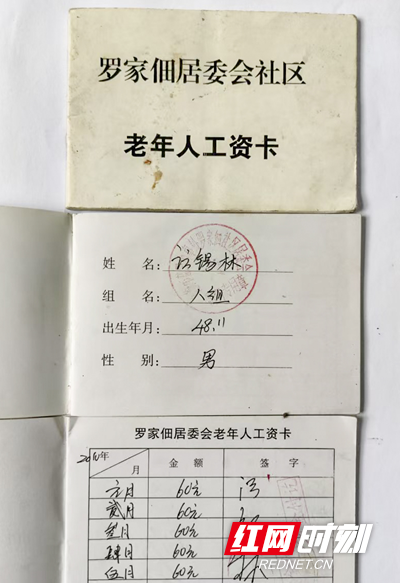 罗家佃居委会社区
老年人工资卡
姓 名: 锡林
组 名: 八组
出生年月: 48.11
性 别: 男
罗家佃居委会老年人工资卡
年
月 金额 签字
元月 60元
贰月 60元
叁月 60元
肆月 60元
伍月 60元
红网时刻
REDNET.CN